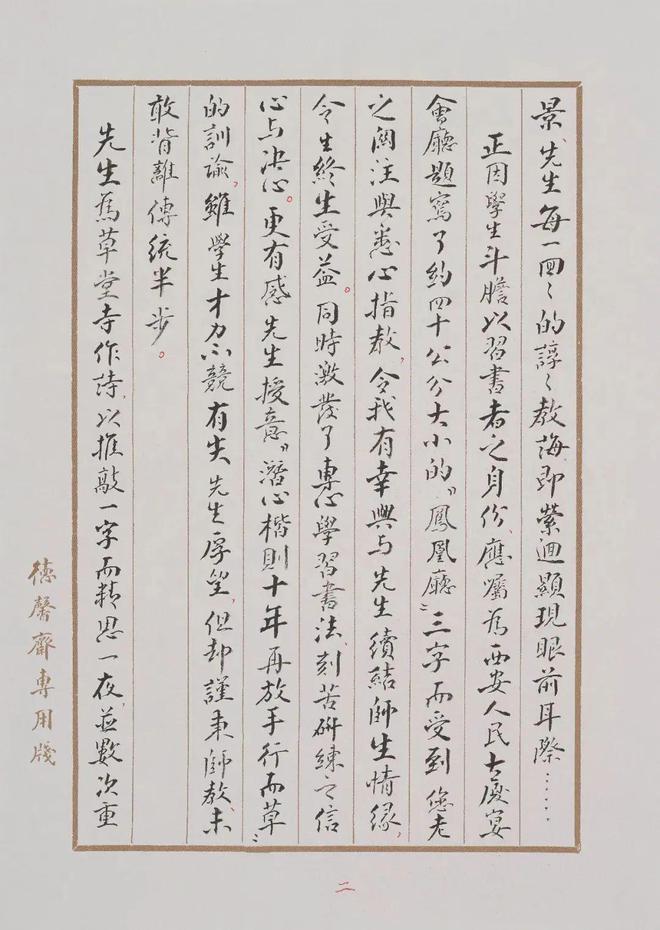 景、先生每一回々的諄々教誨即縈迴顯現眼前耳際……
正因學生斗膽以習書者之身份、應囑為西安人民大廈宴
會廳題寫了約四十公分大小的“鳳凰廳”三字而受到您老
之関注與悉心指教，令我有幸興与先生續結師生情缘，
令生終生受益。同時激發了專心學習書法、刻苦研練之信
心与决心。更有感先生授意“潛心楷則十年再放手行而草…”
的訓諭，雖學生才力不競有失先生厚望，但却謹秉師教、未
敢背離傳統半步。
先生為草堂寺作詩，以推敲一字而耕思一夜，並數次重
德馨齋專用牋
二